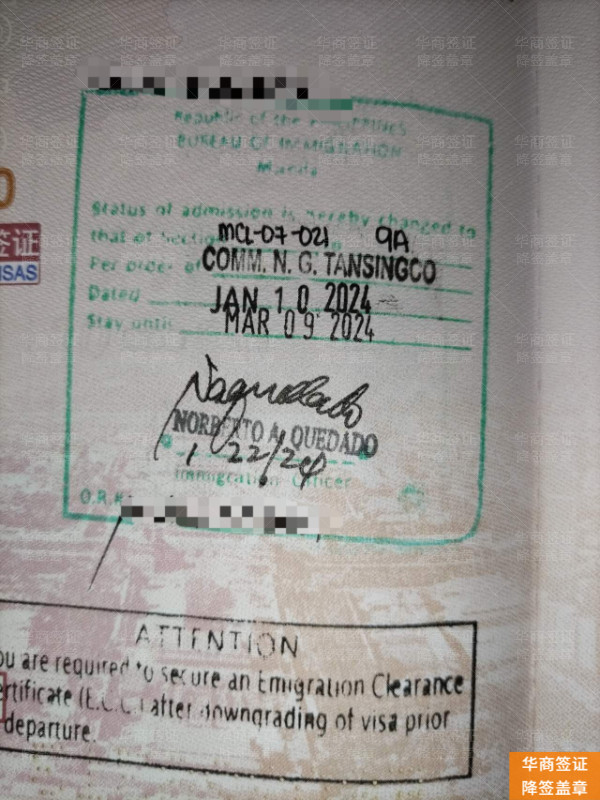 Republic of the PHILIPPINES
BUREAU OF IMMIGRATION
Manila
Status of admission is hereby changed to
that of Section MCL-07-021 9A
Per order of COMM. N. G. TANSINGCO
Dated JAN 10 2024
Stay until MAR 09 2024
NORBERTO A. QUEDADO
1/22/24
Immigration Officer
O.R.#
签证
ISAS
ATTENTION
ou are required to secure an Emigration Clearance
ertificate (E.C.C.) after downgrading of visa prior
departure.
华商签证
降签盖章